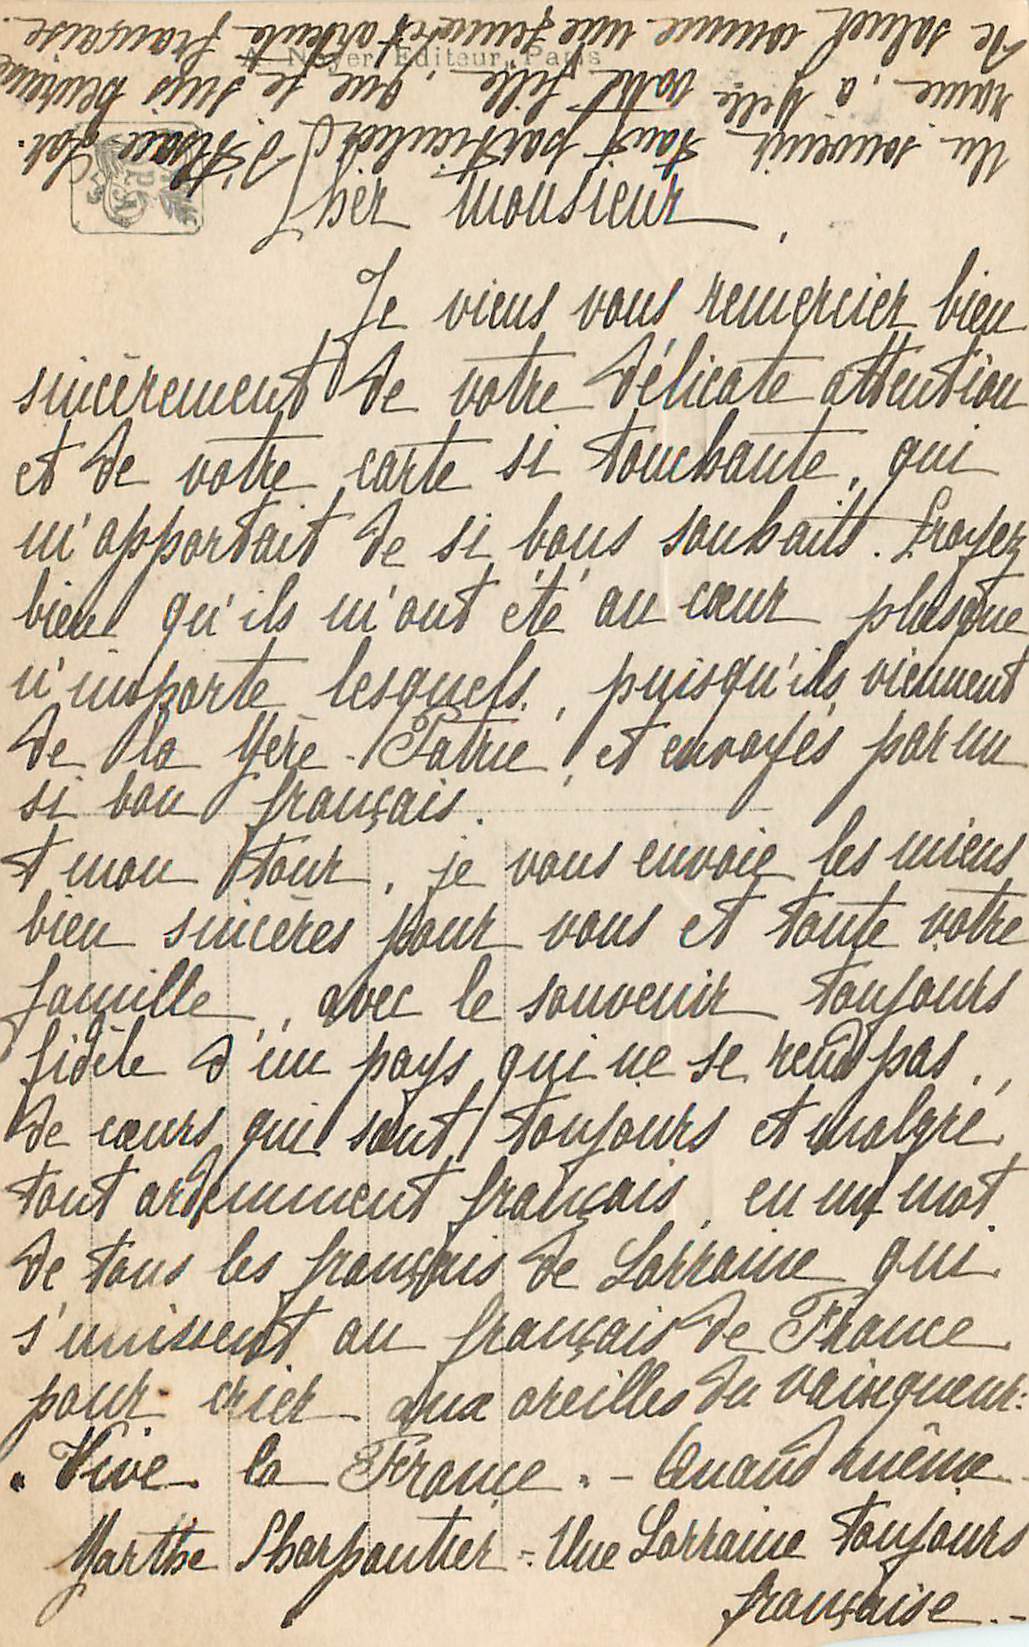 A. Noyer, Editeur, Paris
Cher Monsieur,
Je viens vous remercier bien
sincèrement de votre délicate attention
et de votre carte si touchante, qui
m'apportait de si bons souhaits. Croyez
bien qu'ils m'ont été au cœur plus que
n'importe lesquels, puisqu'ils viennent
de la Mère-Patrie, et envoyés par un
si bon français.
A mon tour, je vous envoie les miens
bien sincères pour vous et toute votre
famille, avec le souvenir toujours
fidèle d'un pays qui ne se rend pas,
de cœurs qui sont toujours et malgré
tout ardemment français, en un mot
de tous les français de Lorraine qui
s'unissent au français de France
pour crier aux oreilles du vainqueur:
"Vive la France" - Quand même -
Marthe Charpentier - Une Lorraine toujours
française. -
Un souvenir tout particulier d'Alsace Lor-
raine, à Melle votre fille, que je suis heureuse
de saluer comme une jeune et ardente française.